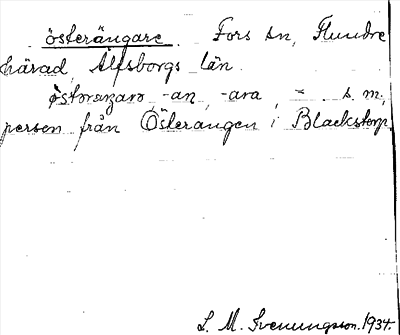 österängare. Fors sn, Flundre
härad, Älfsborgs län.
östoraŋaro, -an, -ara, ~ s. m.,
person från Österängen i Blackstorp.
L. M. Svenungsson. 1934.